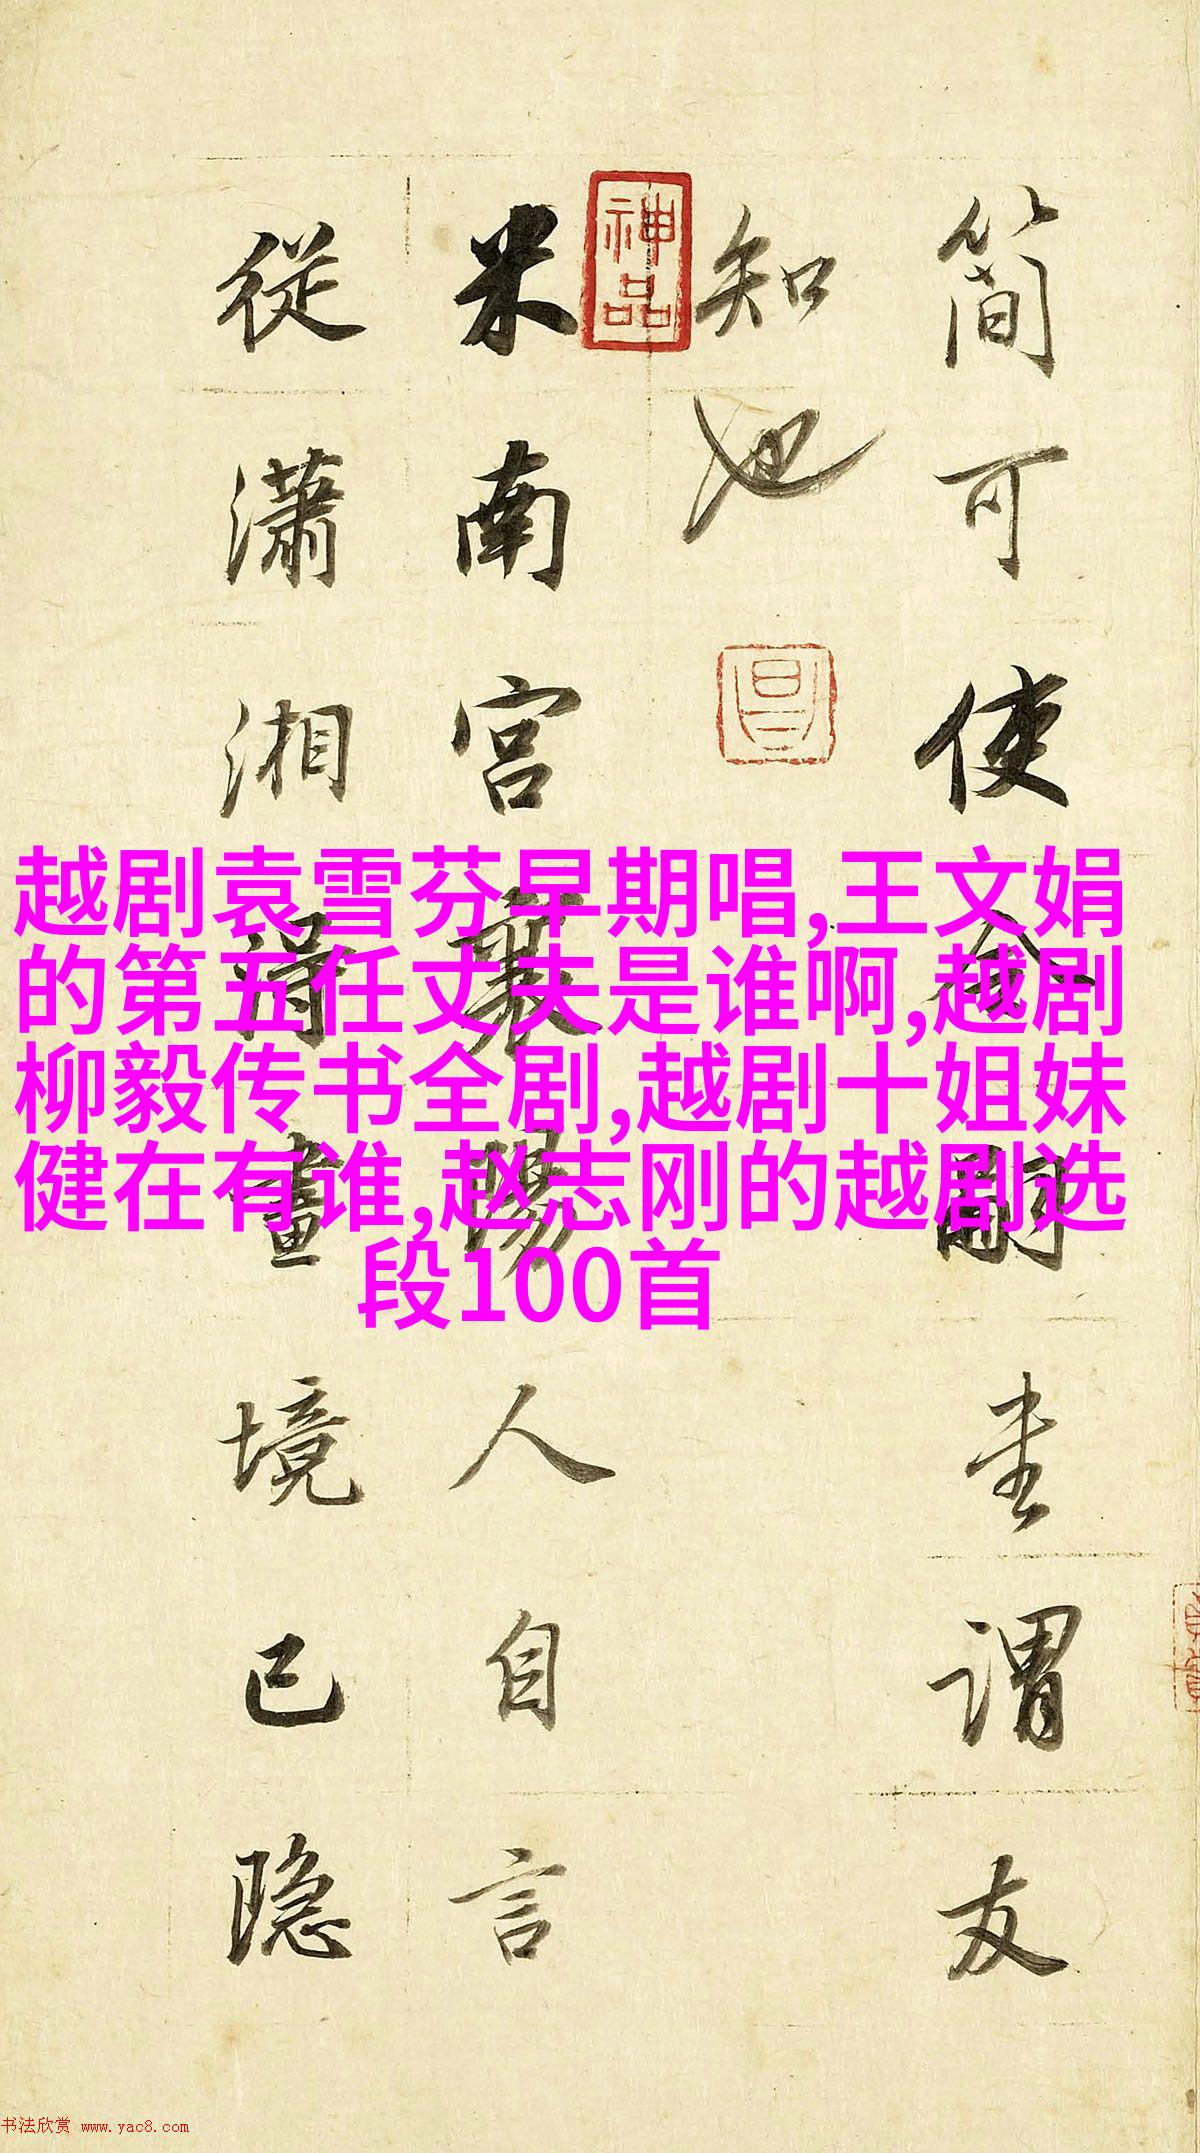 簡可使令嗣圭謂友
知也
神品
昌
米南宮襄陽人自言
從瀟湘得畫境已隐
越剧袁雪芬早期唱,王文娟
的第五任丈夫是谁啊,越剧
柳毅传书全剧,越剧十姐妹
健在有谁,赵志刚的越剧选
段100首
书法欣赏 www.yac8.com